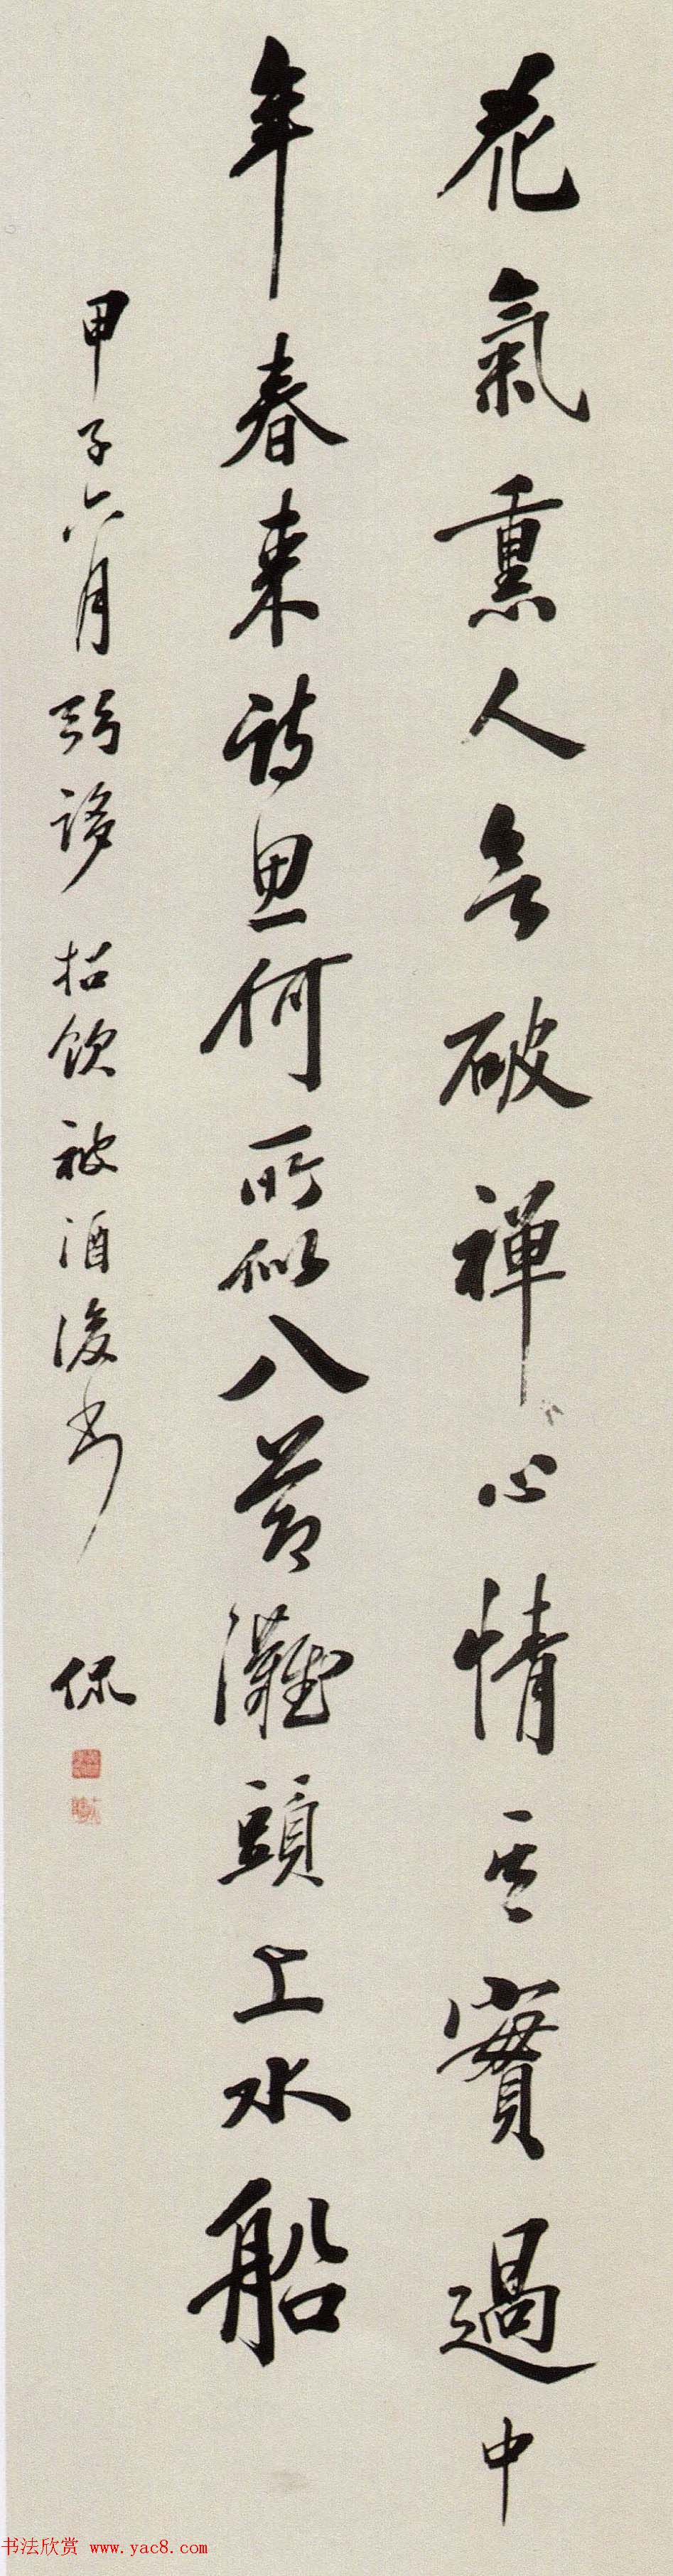 花氣熏人欲破禪心情其實過中
年春来詩思何所似八節灘頭上水船
甲子六月 招飲被酒後書 侃
书法欣赏 www.yac8.com